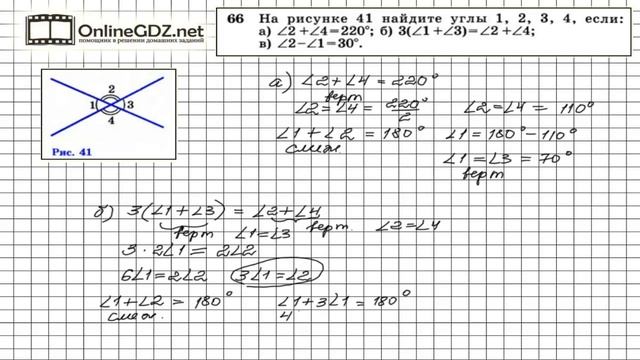 OnlineGDZ.net
помощник в решении домашних заданий
66 На рисунке 41 найдите углы 1, 2, 3, 4, если:
а) ∠2+∠4=220°; б) 3(∠1+∠3)=∠2+∠4;
в) ∠2−∠1=30°.
2
1 3
4
Рис. 41
а) ∠2+∠4=220°
верт
∠2=∠4= 220°/2 ∠2=∠4= 110°
∠1+∠2=180° ∠1=180°−110°
смеж ∠1=∠3=70°
верт
б) 3(∠1+∠3)=∠2+∠4
верт ∠1=∠3 верт. ∠2=∠4
3·2∠1=2∠2
6∠1=2∠2 3∠1=∠2
∠1+∠2=180° ∠1+3∠1=180°
смеж. 4